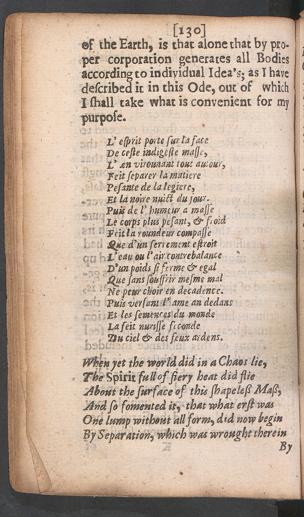 [130]
of the Earth, is that alone that by pro-
per corporation generates all Bodies
according to individual Idea's; as I have
described it in this Ode, out of which
I shall take what is convenient for my
purpose.
L' esprit porte sur la face
De ceste indigeste masse,
L' en vironnant tout autour,
Feit separer la matiere
Pesante de la legiere,
Et la noire nuict du jour.
Puis de l' humeur a masse
Le corps plus pesant, & froid
Feit la roundeur compasse
Que d'un serrement estroit
L' eau ou l' air contrebalance
D'un poids si ferme & egal
Que sans souffrir mesme mal
Ne peut choir en decadence.
Puis versant l' ame an dedans
Et les semences du monde
La feit nursse fi conde
Du ciel & des feux ardens.
When yet the world did in a Chaos lie,
The Spirit full of fiery heat did flie
About the surface of this shapeless Mass,
And so fomented it, that what erst was
One lump without all form, did now begin
By Separation, which was wrought therein
By